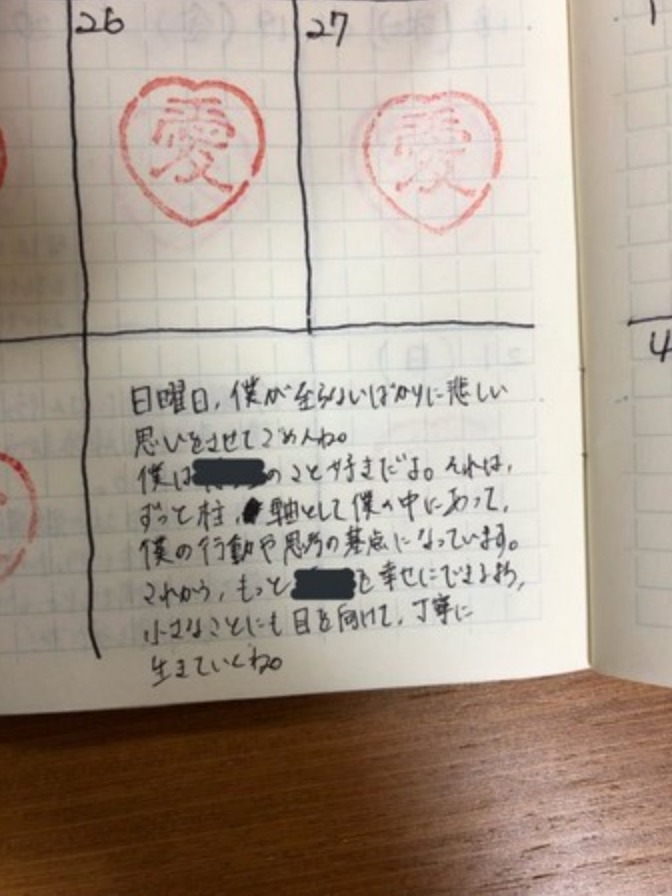 26
27
愛
愛
日曜日、僕が至らないばかりに悲しい
思いをさせてごめんね。
僕は のこと好きだよ。それは、
ずっと柱、軸として僕の中にあって、
僕の行動や思考の基点になっています。
これから、もっと を幸せにできるよう、
小さなことにも目を向けて、丁寧に
生きていくね。
4